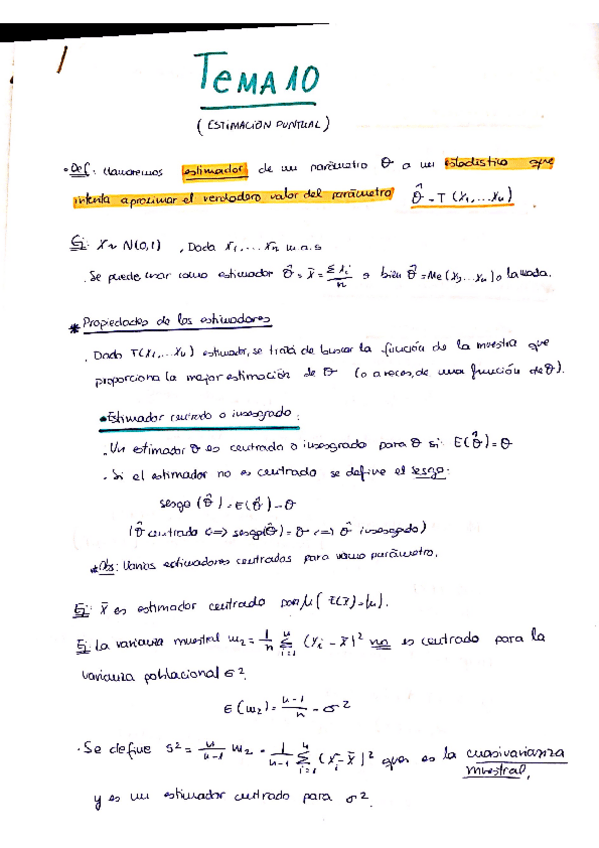 1
TEMA 10
(ESTIMACIÓN PUNTUAL)
• Def: Llamaremos estimador de un parámetro θ a un estadístico que
intenta aproximar el verdadero valor del parámetro θ̂ = T (X₁,...Xn)
Ej: X~ N(θ,1) , Dada x₁,...xn m.a.s
. Se puede usar como estimador θ̂ = x̄ = Σxi/n o bien θ̂ = Me (x₁...xn) o la moda.
* Propiedades de los estimadores
. Dado T(X₁,...Xn) estimador, se trata de buscar la función de la muestra que
proporciona la mejor estimación de θ (o a veces, de una función de θ).
• Estimador centrado o insesgado:
. Un estimador θ̂ es centrado o insesgado para θ si: E(θ̂) = θ
. Si el estimador no es centrado se define el sesgo:
sesgo (θ̂) = E(θ̂) - θ
(θ̂ centrado <=> sesgo(θ̂) = 0 <=> θ̂ insesgado)
* Obs: Varios estimadores centrados para mismo parámetro.
Ej: x̄ es estimador centrado para μ (E(x̄) = μ).
Ej: La varianza muestral m₂ = 1/n Σ(i=1, n) (xi - x̄)² no es centrado para la
varianza poblacional σ².
E(m₂) = n-1/n · σ²
. Se define s² = n/n-1 m₂ = 1/n-1 Σ(i=1, n) (xi - x̄)² que es la cuasivarianza
muestral,
y es un estimador centrado para σ².